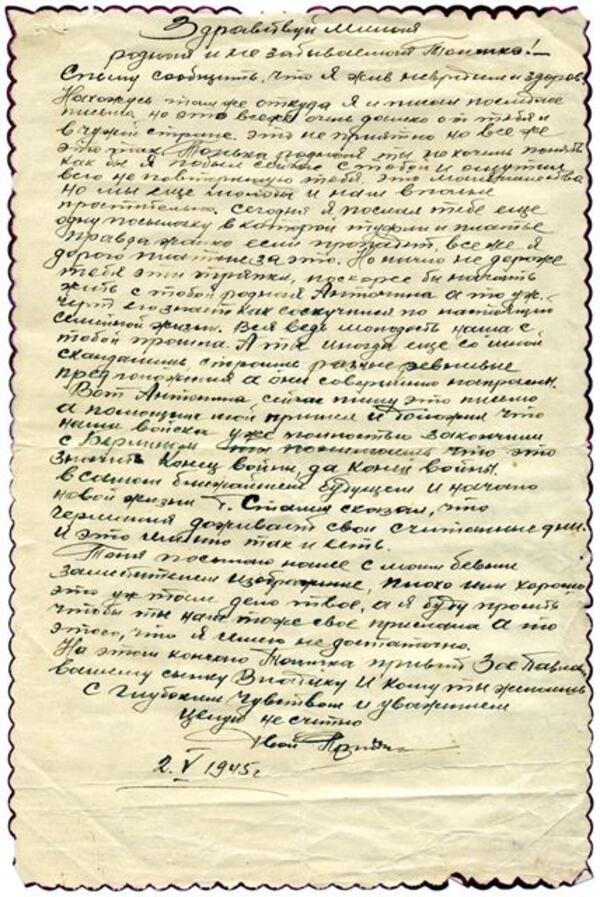 Здравствуй милая
родная и не забываемая Тонечка! —
Спешу сообщить, что я жив невредим и здоров.
Нахожусь там же откуда я и писал последнее
письмо, но это все же очень далеко от тебя и
в чужой стране. это не приятно но все же
это так. Тонька родная ты не хочешь понять
как бы я побыл сейчас с тобой и ощутил
всего не повторимую тебя. это
но мы еще молоды и нам вполне
простительно. Сегодня я послал тебе еще
одну посылочку в которой туфли и платье
правда жалко если пропадет, все же я
дорого платил за это. Но ничто не дороже
тебя эти тряпки, поскорее бы начать
жить с тобой родная Антонина а то уж
черт его знает как соскучился по настоящей
семейной жизни. Вся ведь молодость наша с
тобой прошла. А ты иногда еще со мной
скандалишь, строишь разные ревнивые
предположения а они совершенно напрасны.
Вот Антонина, сейчас пишу это письмо
а помощник мой пришел и доложил что
наши войска уже полностью закончили
с Берлином ты понимаешь что это
значит конец войны, да конец войны
в самом ближайшем будущем и начало
новой жизни т. Сталин сказал, что
германия доживает свои считанные дни.
и это именно так и есть.
Тоня посылаю наше с моим бевшим
заместителем изображение, плохо или хорошо
это уж там дело твое, а я буду просить
чтобы ты нам тоже свое прислала а то
этого, что я имею не достаточно.
На этом кончаю Тонечка привет Зое Павл.
вашему сынку Виталику и кому ты желаешь
С глубоким чувством и уважением
целую не счетно
Твой
2. V 1945 г